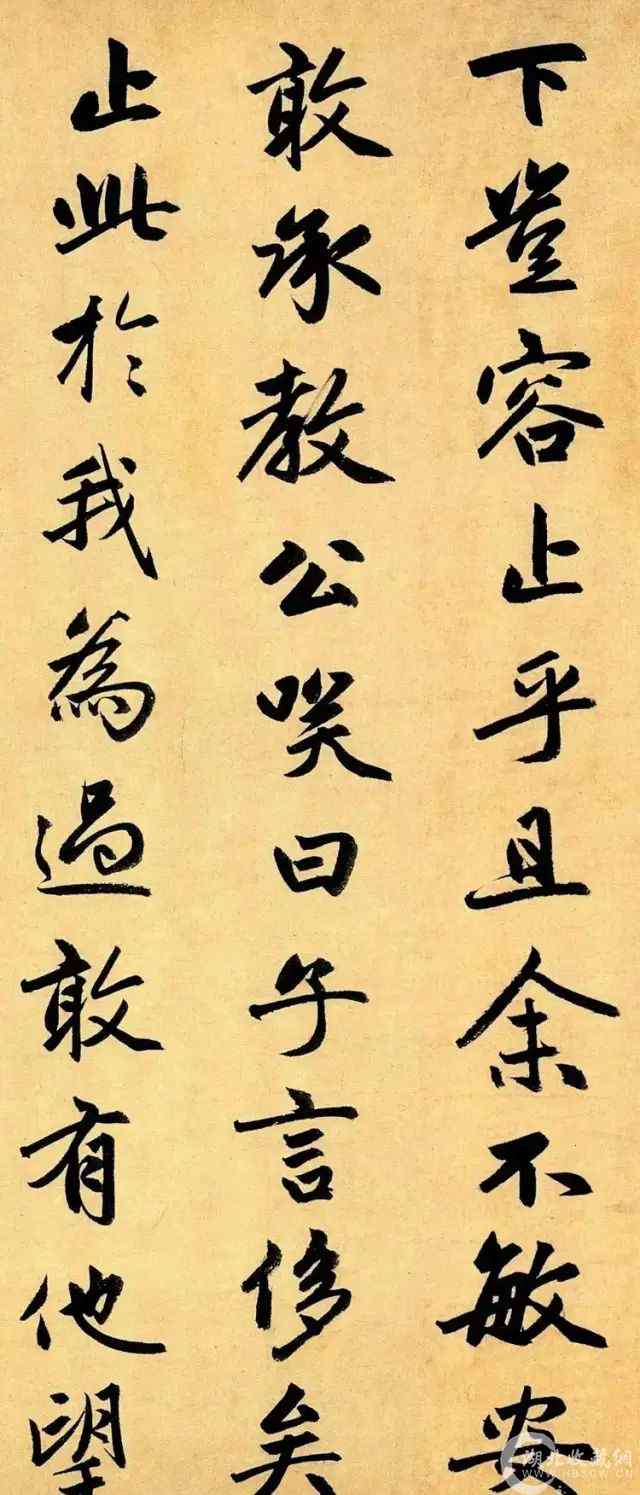 下豈容止乎且余不敏安
敢承教公唉曰子言侈矣
止此於我為過敢有他望
湖北收藏网
WWW.HBSCW.CN